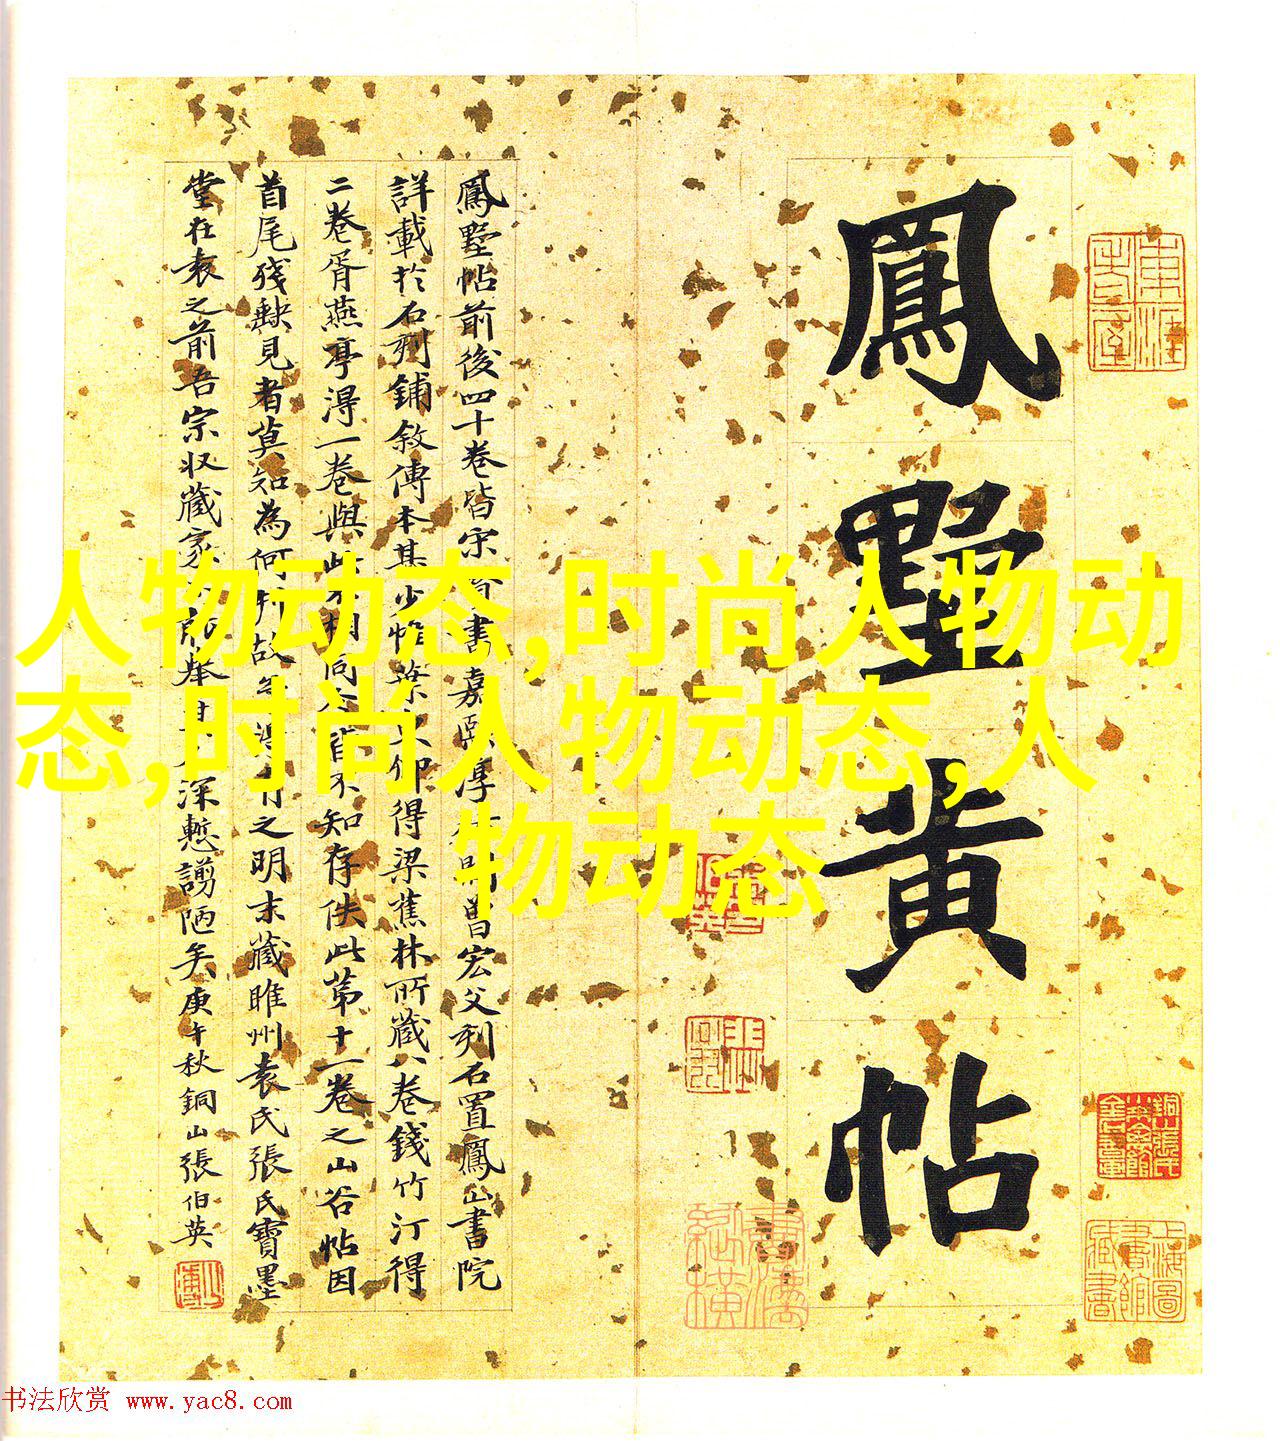 鳳墅黄帖
鳳墅帖前後四十卷皆宋書嘉熙淳曾宏父刻石置鳳山書院
詳載於石刻鋪敘傳本甚少惟葉仰得梁蕉林所藏八卷錢竹汀得
二卷胥燕亭得一卷與此不知存佚此第十一卷之山谷帖因
首尾殘缺見者莫知為何故之明末藏睢州袁氏張氏寶墨
堂在袁之前吾宗收藏家深慙謭陋矣庚午秋銅山張伯英
人物动态,时尚人物动
态,时尚人物动态,人
物动态
上海圖書館藏書
书法欣赏 www.yac8.com